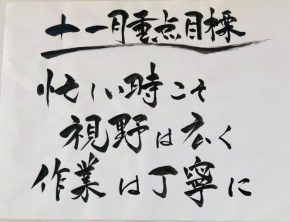 十一月重点目標
忙しい時こそ
視野は広く
作業は丁寧に